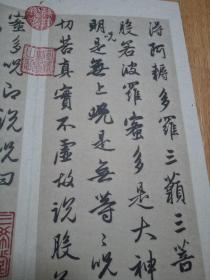 得阿耨多羅三藐三菩
般若波羅蜜多是大神
明呪是無上呪是無等〻呪
切苦真實不虛故說般若
蜜多呪即說呪曰